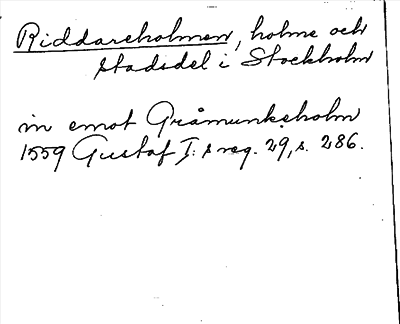 Riddareholmen, holme och
stadsdel i Stockholm
in emot Gråmunkeholm
1559 Gustaf I:s reg. 29, s. 286.